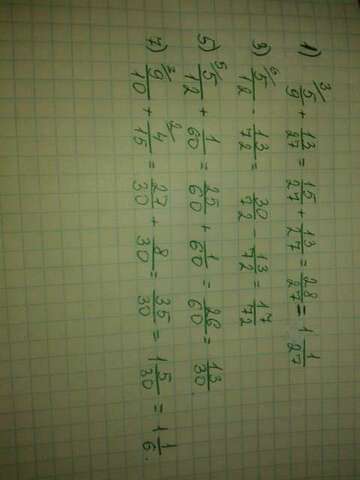 1) ³/ 5/9 + 13/27 = 15/27 + 13/27 = 28/27 = 1 1/27
3) ⁶/ 5/12 - 13/72 = 30/72 - 13/72 = 17/72
5) ⁵/ 5/12 + 1/60 = 25/60 + 1/60 = 26/60 = 13/30
7) ³/ 9/10 + ²/ 4/15 = 27/30 + 8/30 = 35/30 = 1 5/30 = 1 1/6.